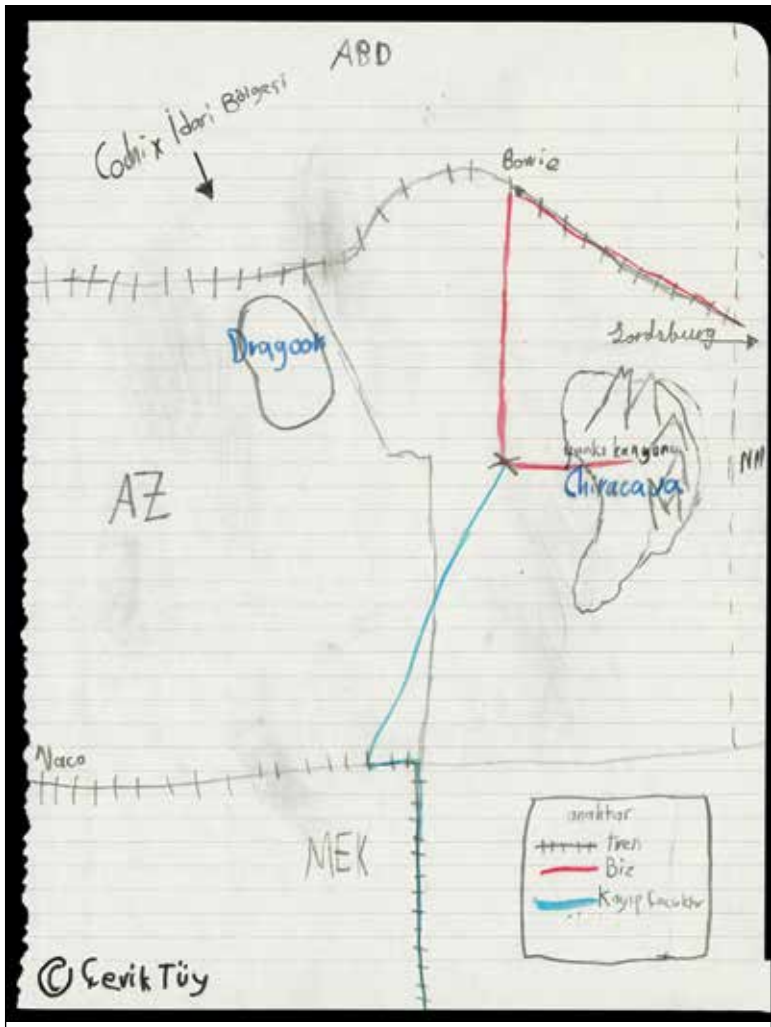 ABD
Cochix İdari Bölgesi
Bowie
Lordsburg
Dragoon
kanyonu
Chiracava
NM
AZ
Naco
MEK
anahtar
tren
Biz
Kayıp Çocuklar
© Çevik Tüy